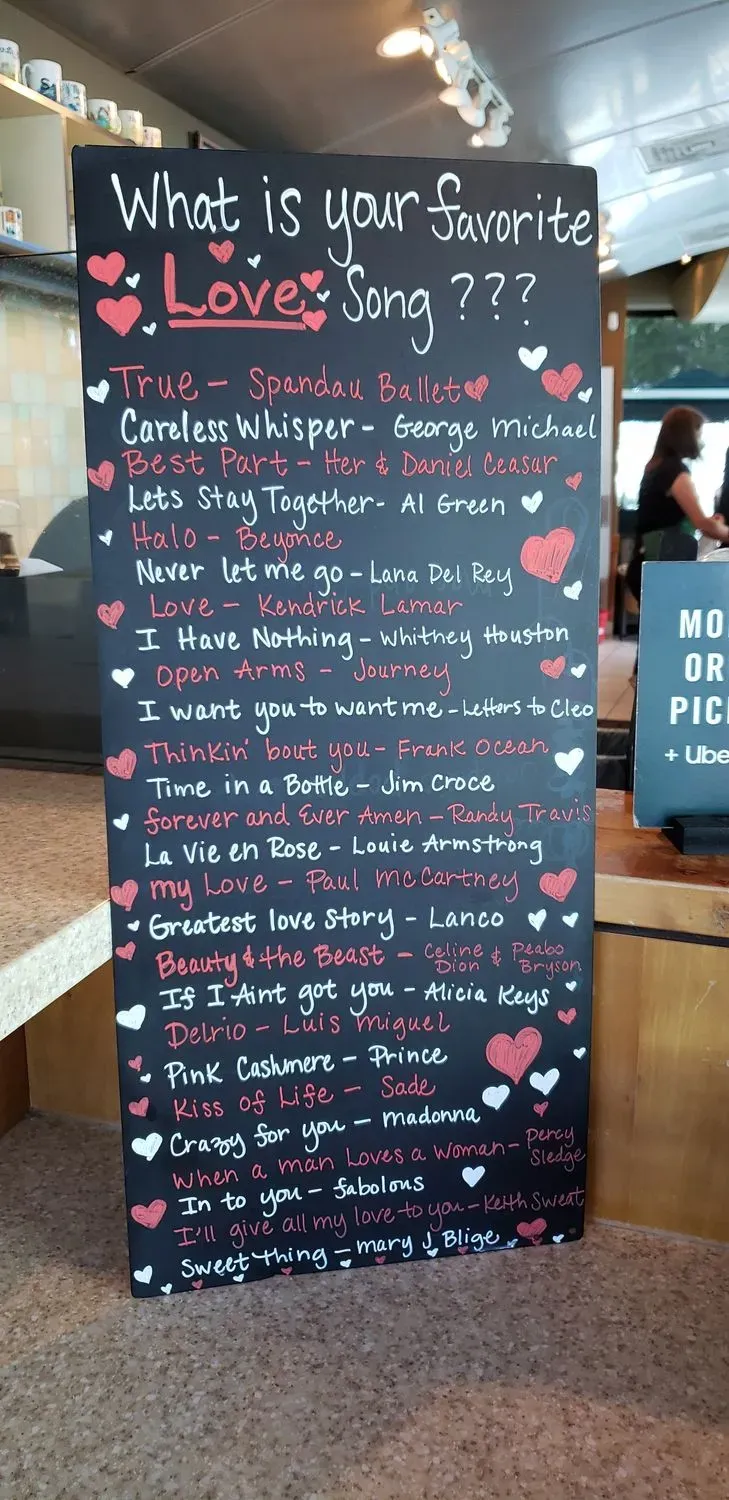 What is your favorite
Love Song ???
True - Spandau Ballet
Careless Whisper - George Michael
Best Part - Her & Daniel Ceasar
Lets Stay Together - Al Green
Halo - Beyonce
Never let me go - Lana Del Rey
Love - Kendrick Lamar
I Have Nothing - Whitney Houston
Open Arms - Journey
I want you to want me - Letters to Cleo
Thinkin' bout you - Frank Ocean
Time in a Bottle - Jim Croce
forever and Ever Amen - Randy Travis
La Vie en Rose - Louie Armstrong
my Love - Paul McCartney
Greatest love Story - Lanco
Beauty & the Beast - Celine Dion & Peabo Bryson
If I Aint got you - Alicia Keys
Delrio - Luis Miguel
Pink Cashmere - Prince
Kiss of Life - Sade
Crazy for you - madonna
When a man Loves a woman - Percy Sledge
In to you - fabolous
I'll give all my love to you - Keith Sweat
Sweet Thing - mary J Blige
MO
OR
PIC
+ Ube